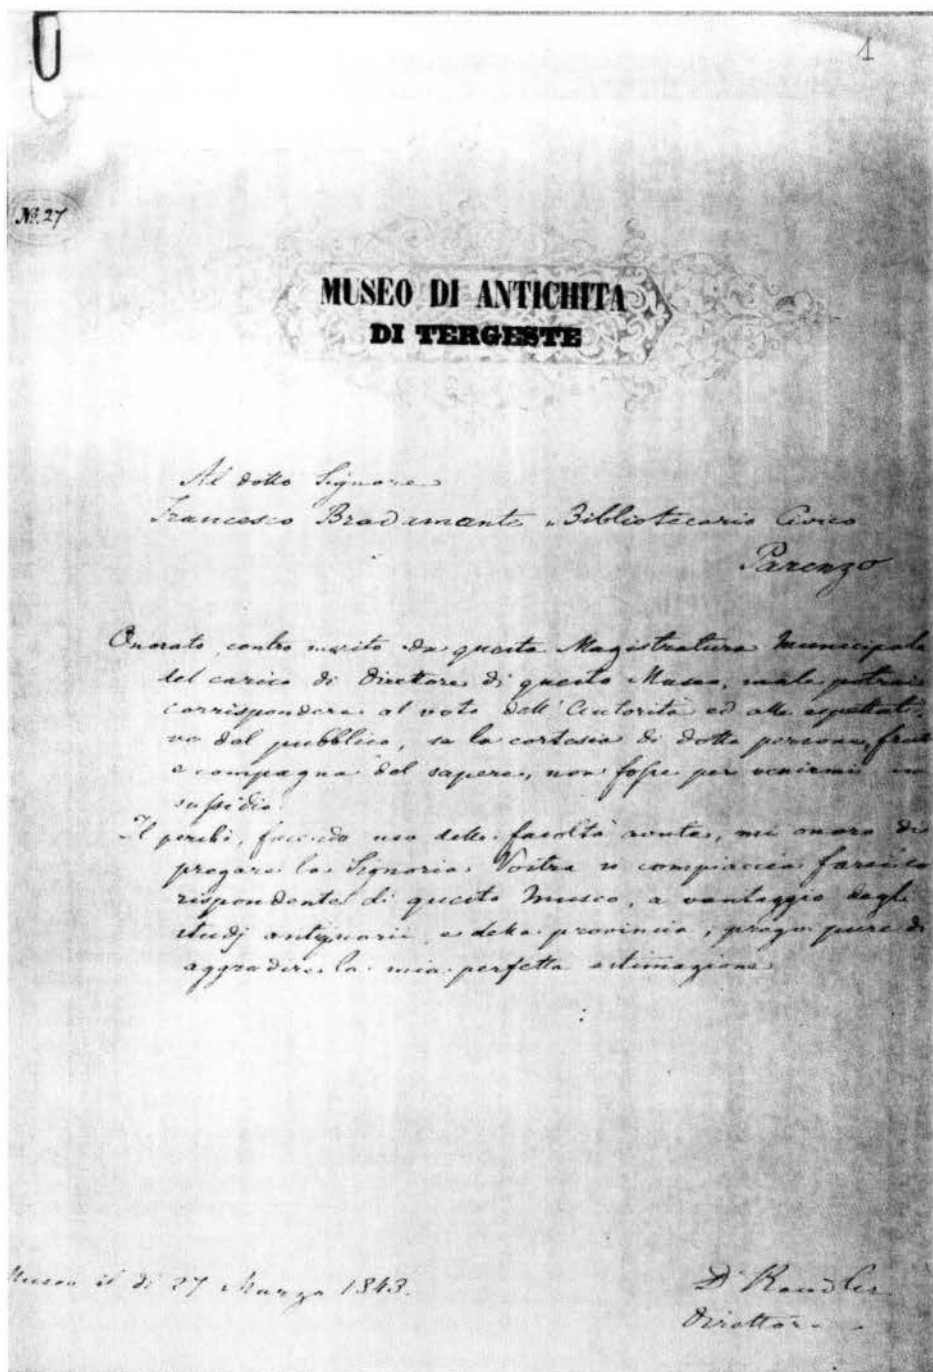 1
No. 27
MUSEO DI ANTICHITA
DI TERGESTE
Al dotto Signore
Francesco Bradamante Bibliotecario Civico
Parenzo
Onorato, contro merito da questa Magistratura Municipale
del carico di Direttore di questo Museo, male potrei
corrispondere al voto dell'Autorità ed alle espettati-
ve del pubblico, se la cortesia di dotte persone,
e compagna del sapere, non fosse per venirmi in
sussidio.
Il perchè, facendo uso delle facoltà avute, mi onoro di
pregare la Signoria Vostra si compiaccia farsi co
rispondente di questo Museo, a vantaggio degli
studj antiquarii, e della provincia; prego pure di
aggradire la mia perfetta estimazione
Museo il dì 27 Marzo 1843.
Dr Kandler
Direttore